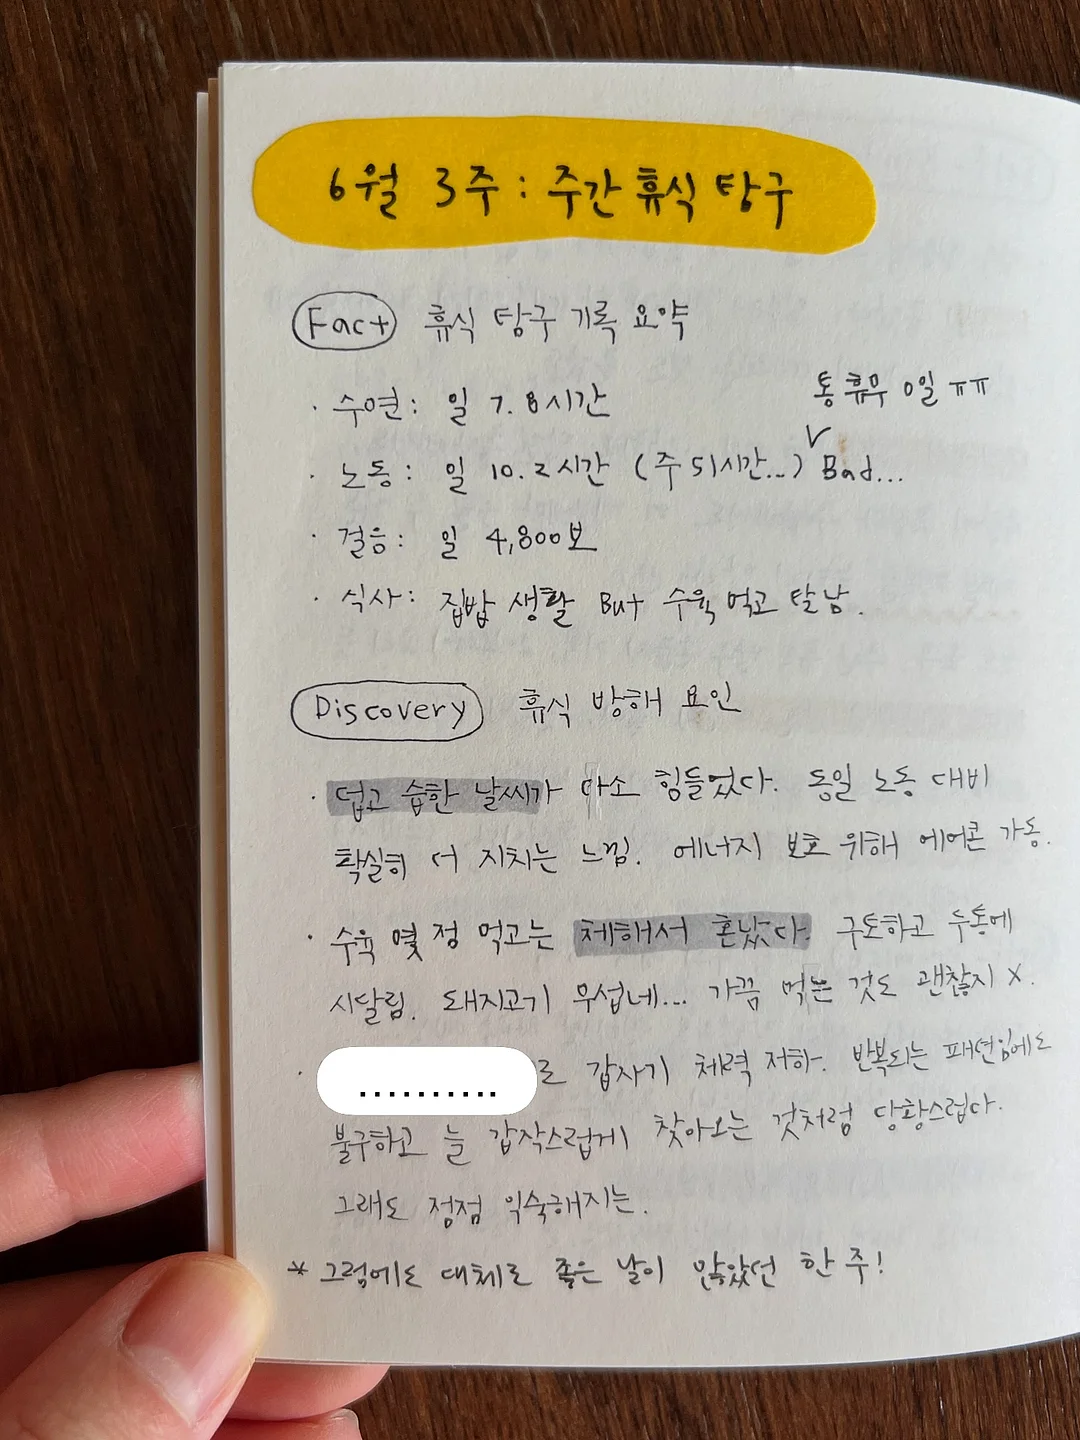 6월 3주 : 주간 휴식 탐구
Fact 휴식 탐구 기록 요약
· 수면: 일 7.8시간
통 휴무 0일 ㅠㅠ
· 노동: 일 10.2시간 (주 51시간...) Bad...
· 걸음: 일 4,800보
· 식사: 집밥 생활 But 수육 먹고 탈남.
Discovery 휴식 방해 요인
· 덥고 습한 날씨가 다소 힘들었다. 동일 노동 대비
확실히 더 지치는 느낌. 에너지 보호 위해 에어콘 가동.
· 수육 몇 점 먹고는 체해서 혼났다. 구토하고 두통에
시달림. 돼지고기 무섭네... 가끔 먹는 것도 괜찮지 X.
· ..........로 갑자기 체력 저하. 반복되는 패턴임에도
불구하고 늘 갑작스럽게 찾아오는 것처럼 당황스럽다.
그래도 점점 익숙해지는.
* 그럼에도 대체로 좋은 날이 많았던 한 주!